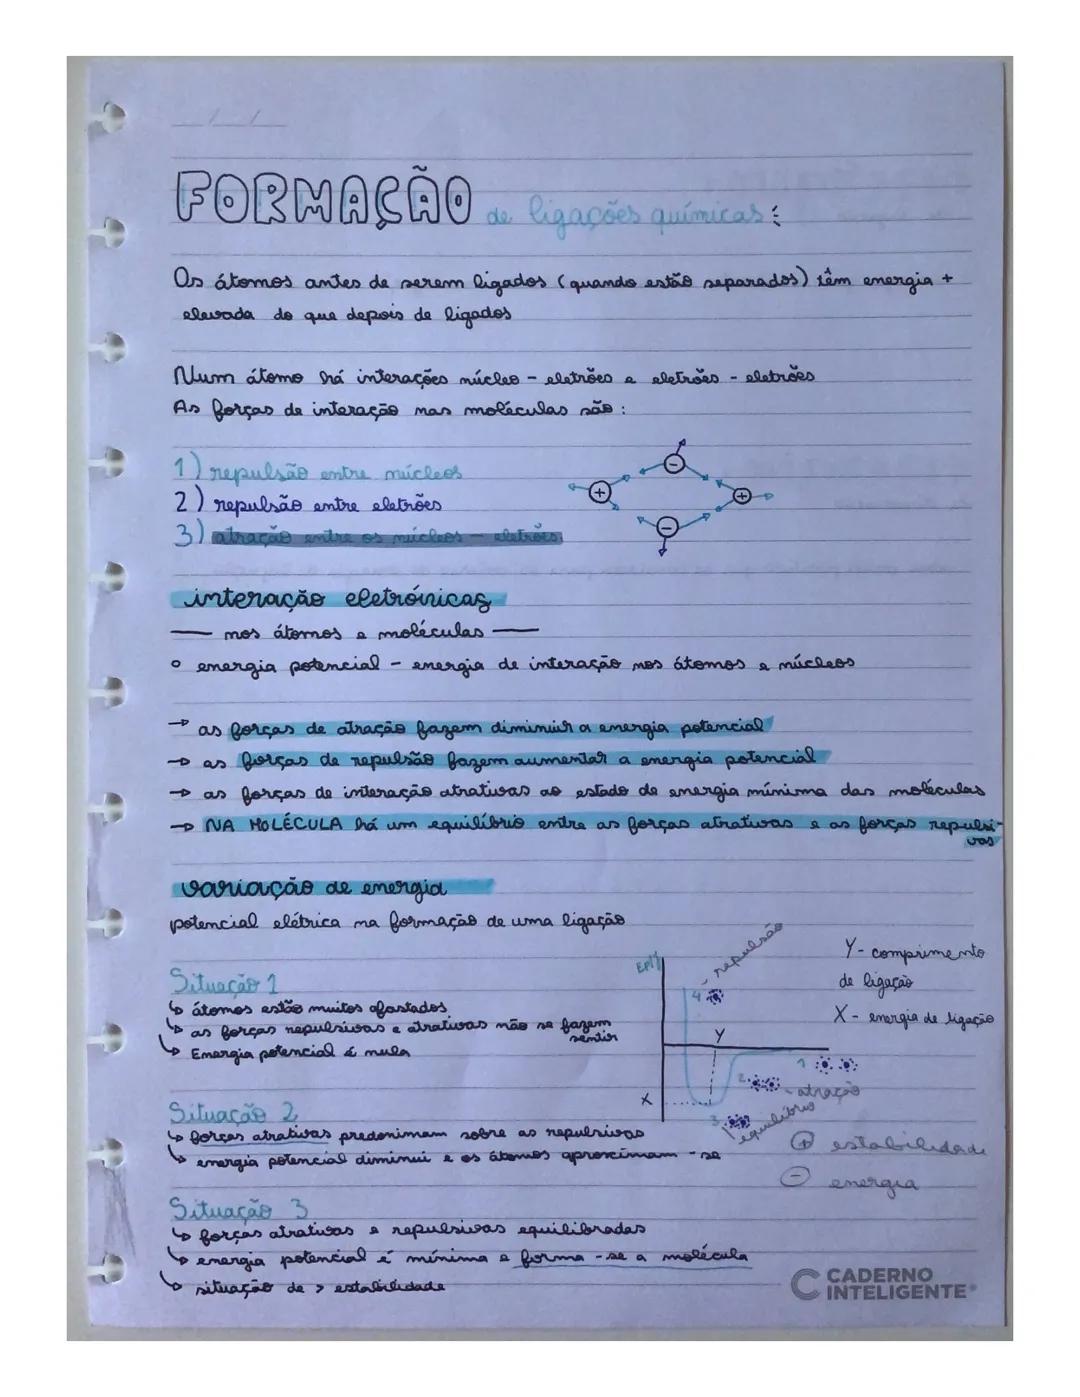 FORMAÇÃO de ligações químicas:
Os átomos antes de serem ligados (quando estão separados) têm energia +
elevada do que depois de ligados
Num átomo há interações núcleo - eletrões e eletrões - eletrões
As forças de interação nas moléculas são:
1) repulsão entre núcleos
2) repulsão entre eletrões
3) atração entre os núcleos - eletrões
interação eletrónicas
nos átomos e moléculas
energia potencial - energia de interação nos átomos e núcleos
→ as forças de atração fazem diminuir a energia potencial
→ as forças de repulsão fazem aumentar a energia potencial
→ as forças de interação atrativas ao estado de energia mínima das moléculas
→ NA MOLÉCULA há um equilíbrio entre as forças atrativas e as forças repulsi-
vas
variação de energia
potencial elétrica na formação de uma ligação
Situação 1
↳ átomos estão muitos afastados
↳ as forças repulsivas e atrativas não se fazem
sentir
↳ Energia potencial é nula
Situação 2
↳ forças atrativas predonimam sobre as repulsivas
↳ energia potencial diminui e os átomos aproximam-se
Situação 3
↳ forças atrativas e repulsivas equilibradas
↳ energia potencial é mínima e forma-se a molécula
↳ situação de > estabilidade
4 - repulsão
Y
1
2 - atração
X
3 equilíbrio
Y - comprimento
de ligação
X - energia de ligação
+ estabilidade
- energia
CADERNO
INTELIGENTE®